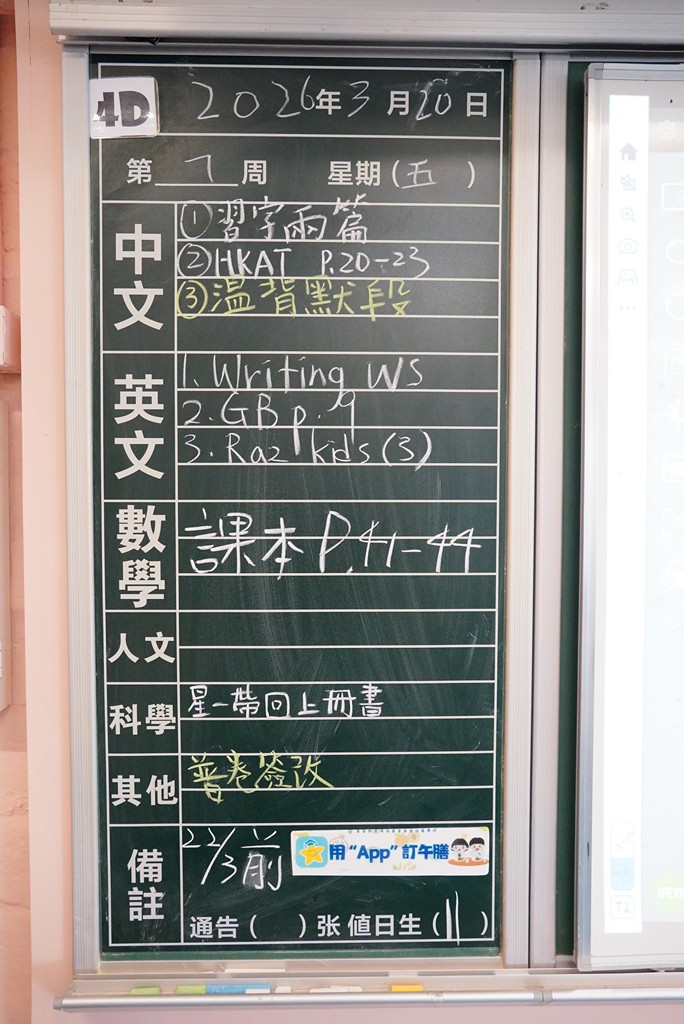 4D 2026年3月20日
第 7 周 星期(五)
中文
①習字兩篇
②HKAT P.20-23
③温背默段
英文
1. Writing WS
2. GB p.9
3. Raz kids (3)
數學
課本 P.41-44
人文
科學
星一帶回上冊書
其他
普卷簽改
備註
22/3前
用“App”訂午膳
通告( )张 值日生(11)